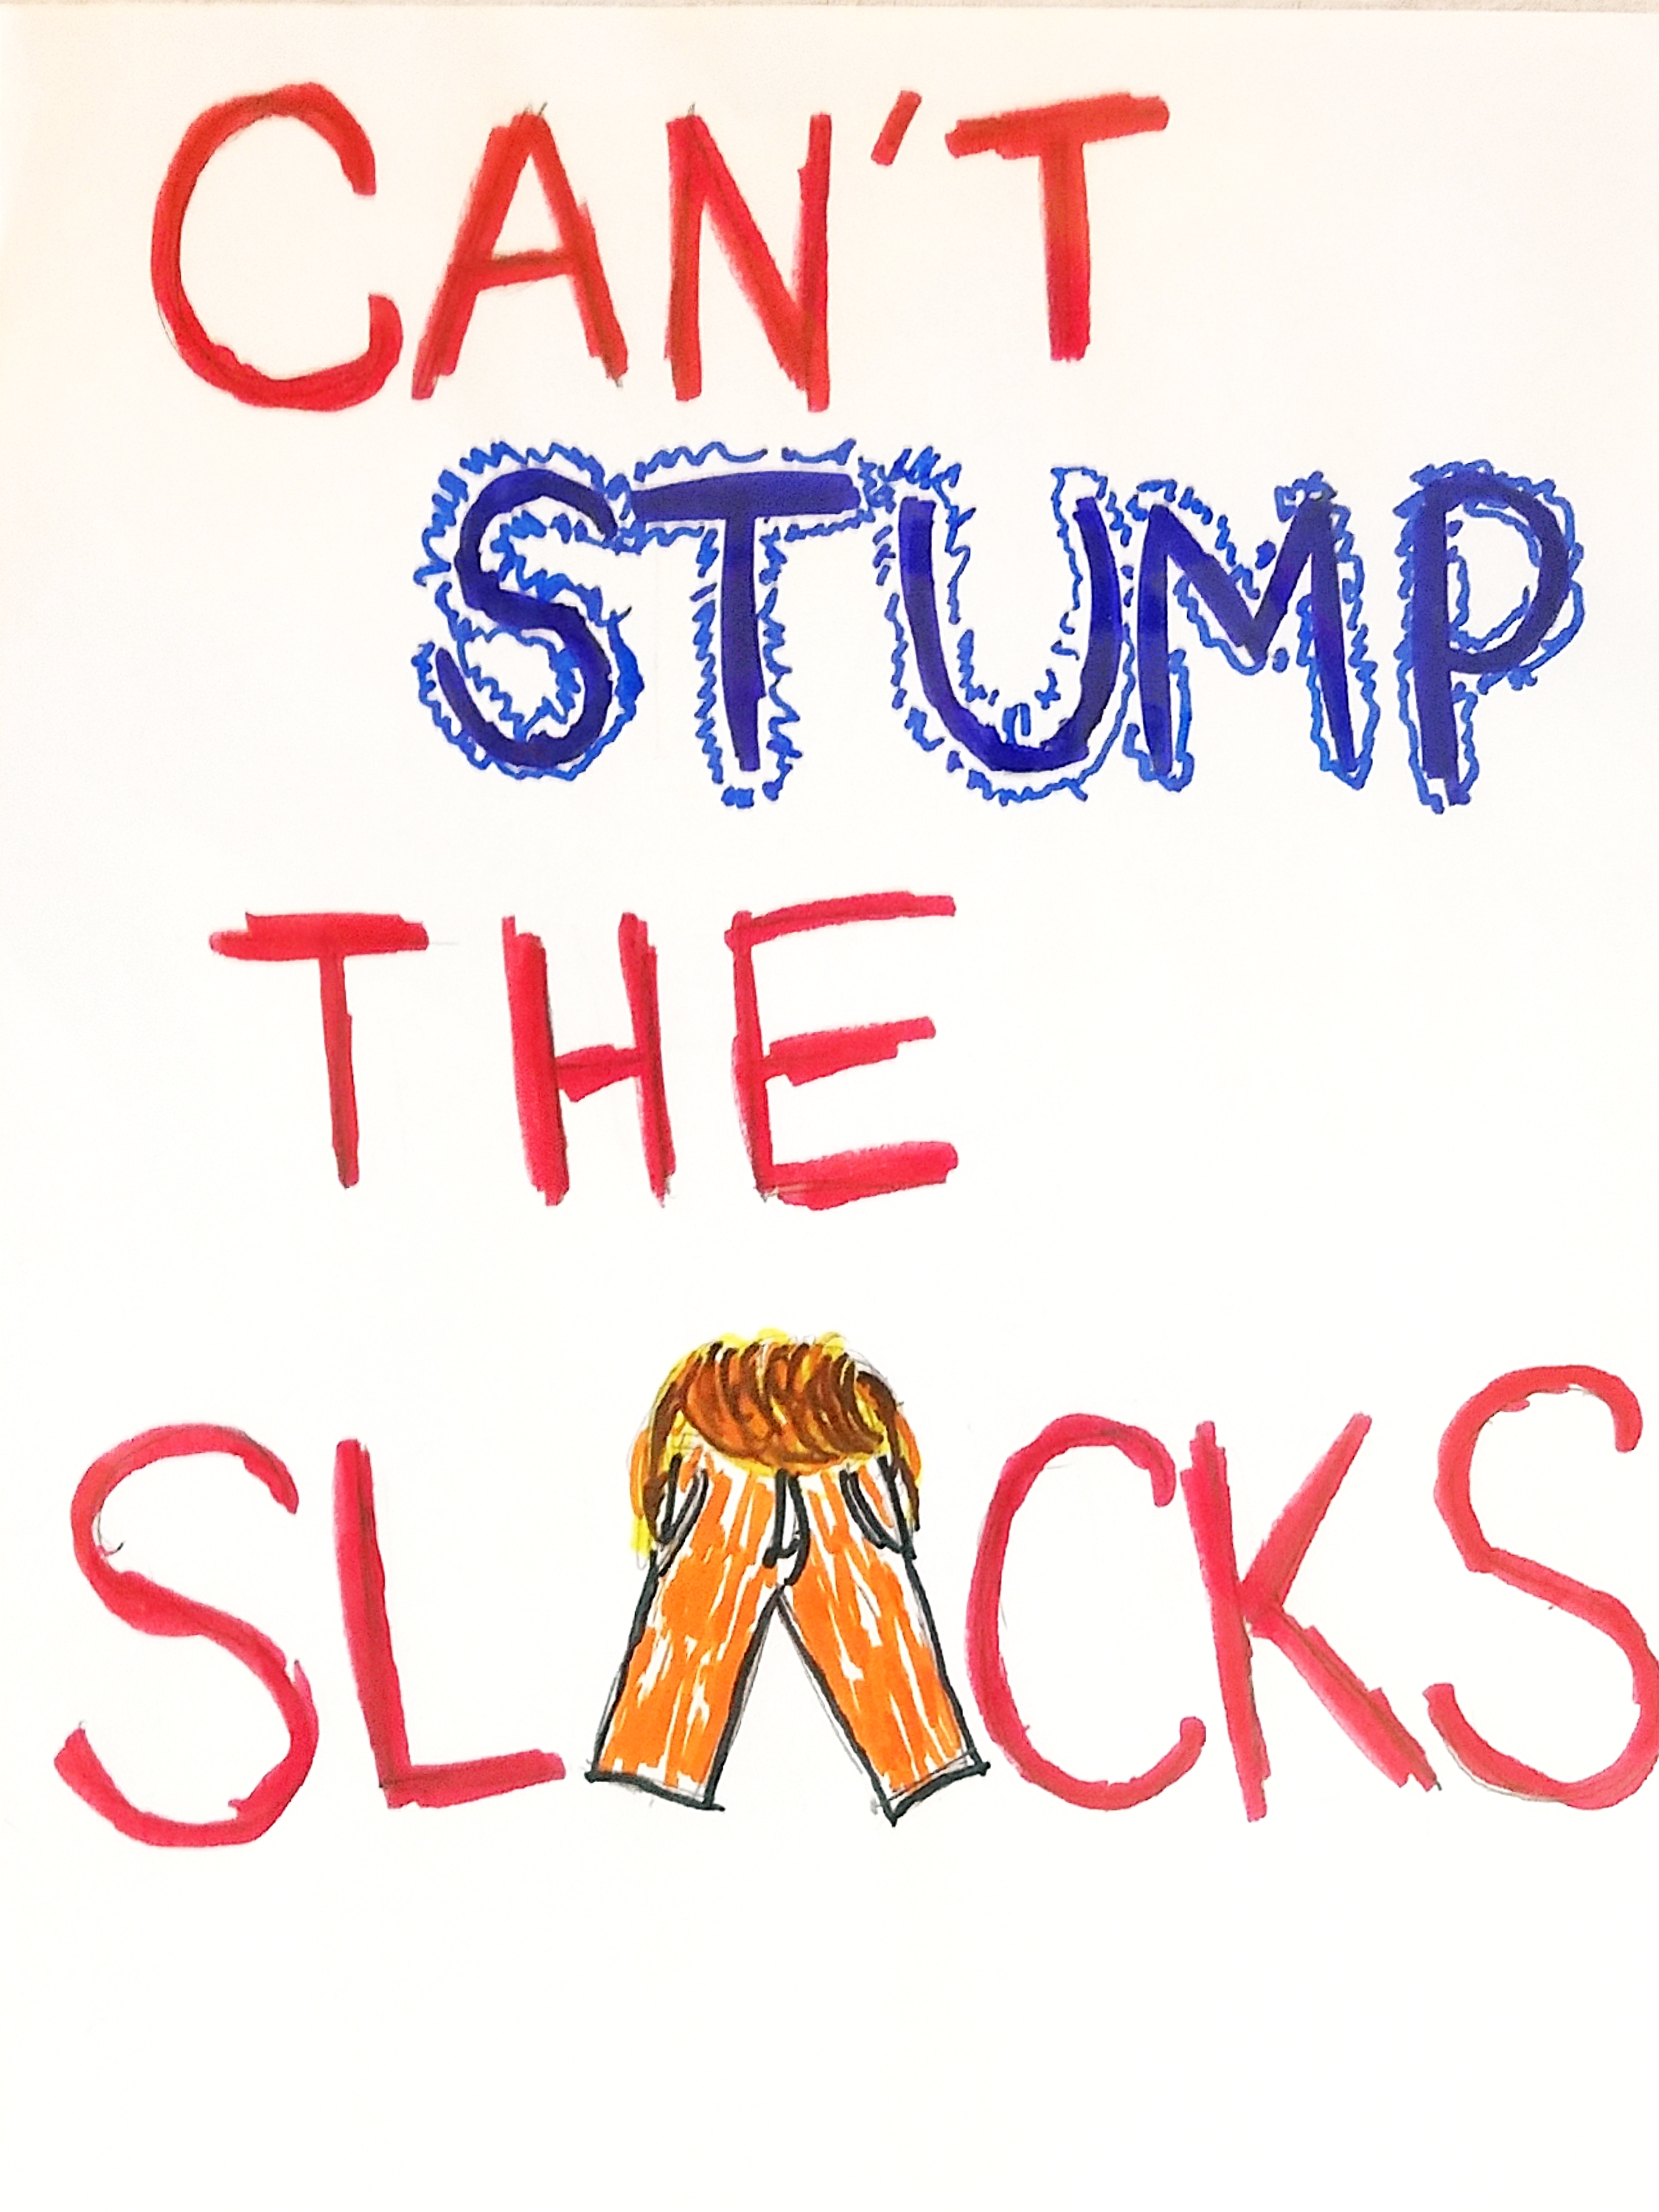 CAN'T
STUMP
THE
SLACKS